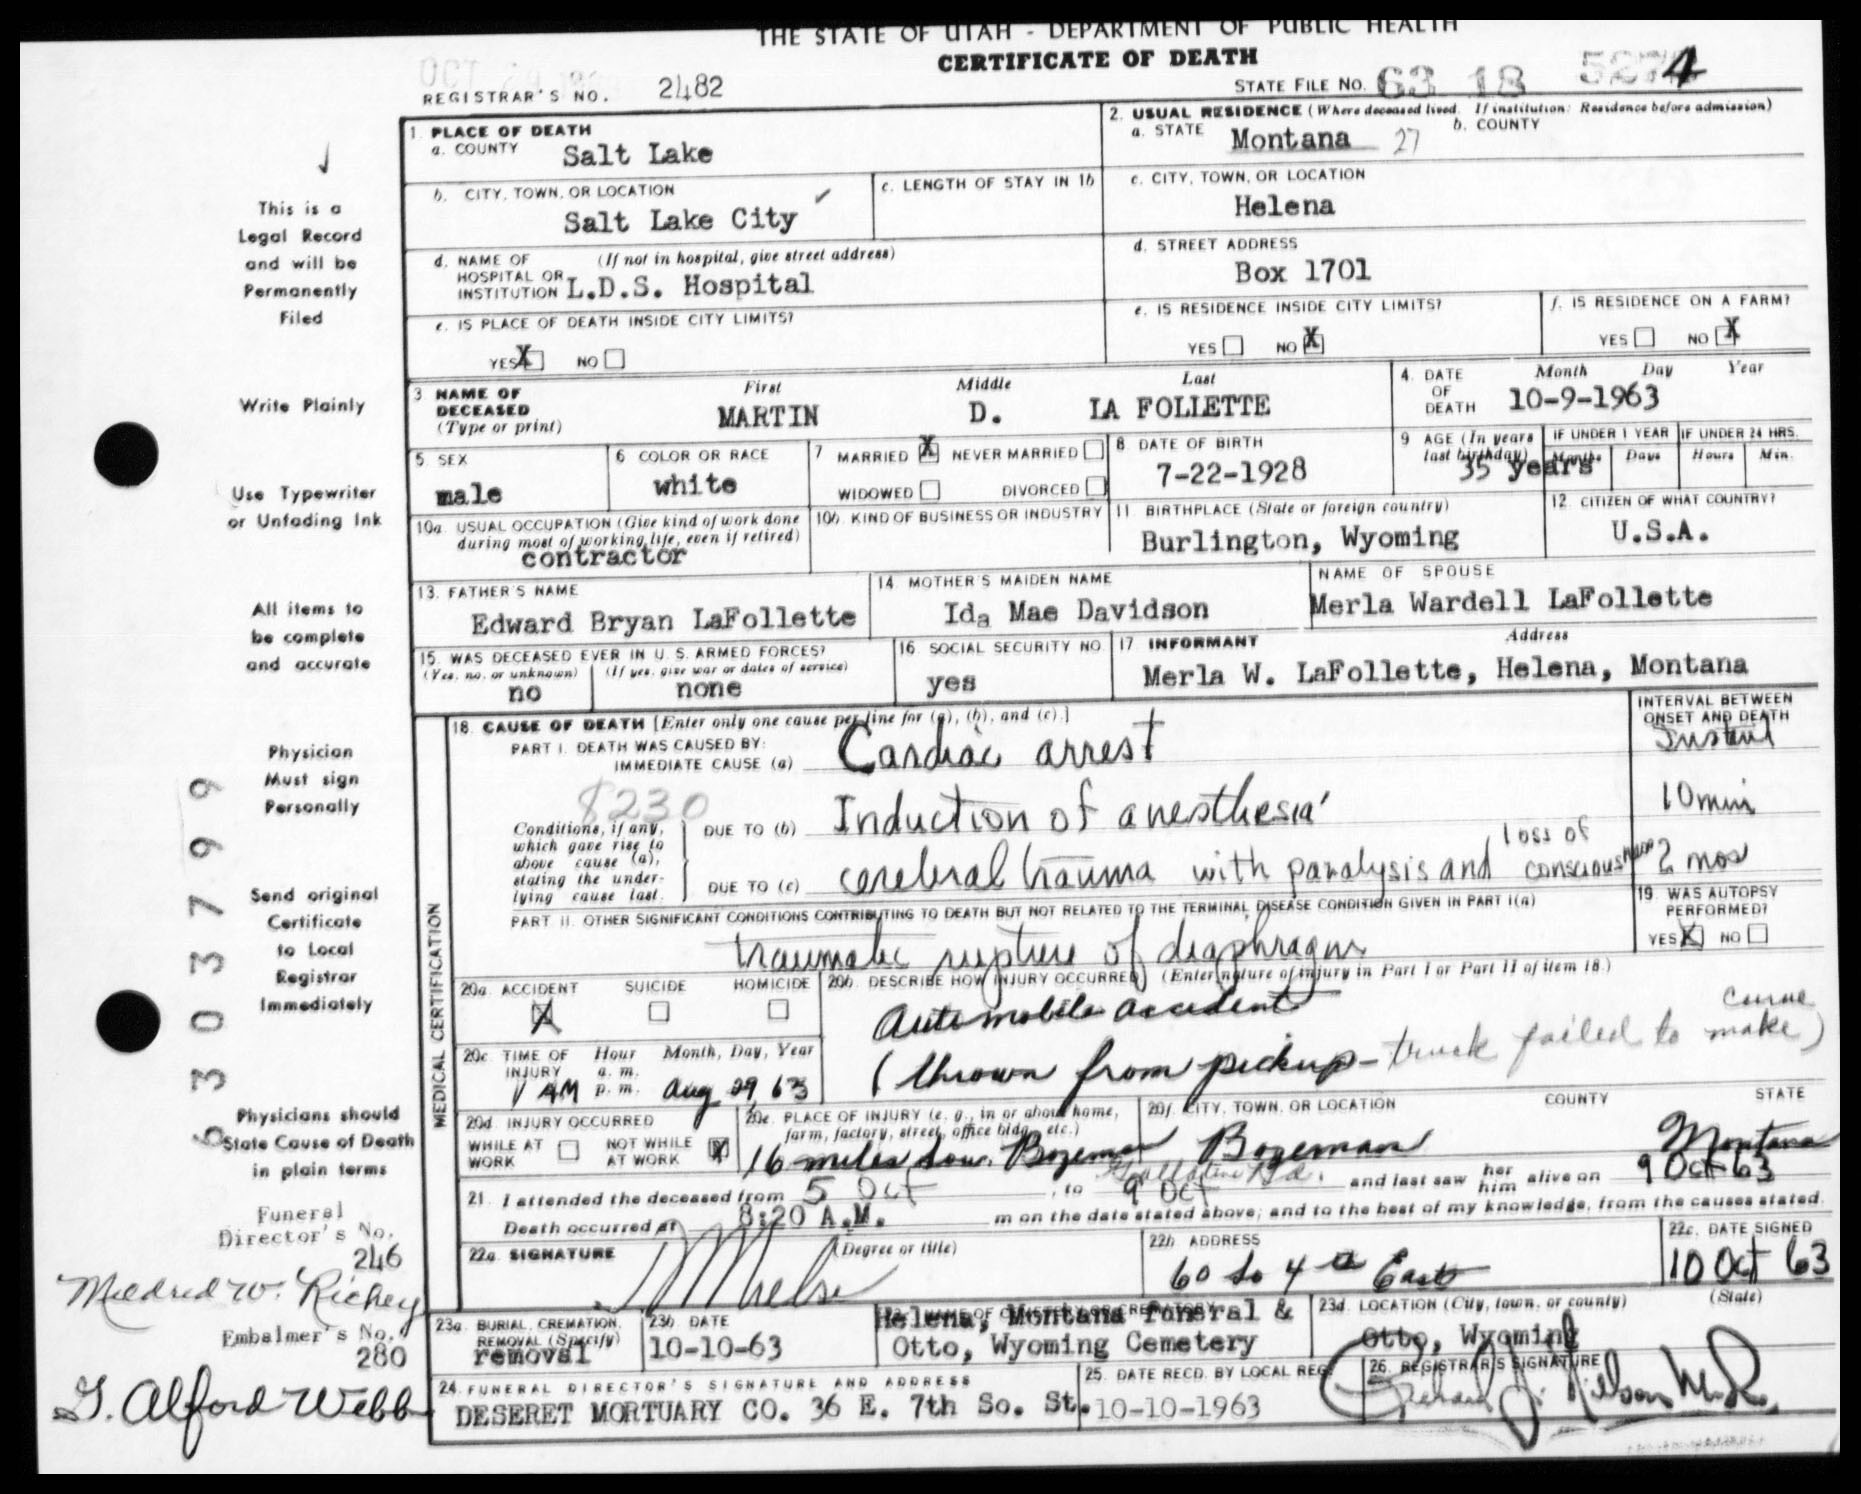 THE STATE OF UTAH - DEPARTMENT OF PUBLIC HEALTH
CERTIFICATE OF DEATH
REGISTRAR'S NO. 2482
STATE FILE NO. 63 18 5274
This is a
Legal Record
and will be
Permanently
Filed
Write Plainly
Use Typewriter
or Unfading Ink
All items to
be complete
and accurate
Physician
Must sign
Personally
Send original
Certificate
to Local
Registrar
Immediately
Physicians should
State Cause of Death
in plain terms
Funeral
Director's No.
246
Mildred W. Richey
Embalmer's No.
280
G. Alford Webb
6303799
1. PLACE OF DEATH
a. COUNTY Salt Lake
b. CITY, TOWN, OR LOCATION Salt Lake City
c. LENGTH OF STAY IN 1b
d. NAME OF HOSPITAL OR INSTITUTION (If not in hospital, give street address)
L.D.S. Hospital
e. IS PLACE OF DEATH INSIDE CITY LIMITS?
YES X NO
2. USUAL RESIDENCE (Where deceased lived. If institution: Residence before admission)
a. STATE Montana 27 b. COUNTY
c. CITY, TOWN, OR LOCATION
Helena
d. STREET ADDRESS
Box 1701
e. IS RESIDENCE INSIDE CITY LIMITS?
YES NO X
f. IS RESIDENCE ON A FARM?
YES NO X
3 NAME OF DECEASED (Type or print)
First Middle Last
MARTIN D. LA FOLLETTE
4. DATE OF DEATH Month Day Year
10-9-1963
5. SEX
male
6 COLOR OR RACE
white
7 MARRIED X NEVER MARRIED
WIDOWED DIVORCED
8 DATE OF BIRTH
7-22-1928
9 AGE (In years last birthday)
35 years
IF UNDER 1 YEAR Months Days
IF UNDER 24 HRS. Hours Min.
10a. USUAL OCCUPATION (Give kind of work done during most of working life, even if retired)
contractor
10b. KIND OF BUSINESS OR INDUSTRY
11 BIRTHPLACE (State or foreign country)
Burlington, Wyoming
12. CITIZEN OF WHAT COUNTRY?
U.S.A.
13. FATHER'S NAME
Edward Bryan LaFollette
14. MOTHER'S MAIDEN NAME
Ida Mae Davidson
NAME OF SPOUSE
Merla Wardell LaFollette
15. WAS DECEASED EVER IN U.S. ARMED FORCES?
(Yes, no, or unknown) (If yes, give war or dates of service)
no none
16. SOCIAL SECURITY NO.
yes
17 INFORMANT Address
Merla W. LaFollette, Helena, Montana
MEDICAL CERTIFICATION
18. CAUSE OF DEATH [Enter only one cause per line for (a), (b), and (c).]
INTERVAL BETWEEN ONSET AND DEATH
PART I. DEATH WAS CAUSED BY:
IMMEDIATE CAUSE (a) Cardiac arrest Instant
8230
Conditions, if any, which gave rise to above cause (a), stating the underlying cause last.
DUE TO (b) Induction of anesthesia 10 min
DUE TO (c) cerebral trauma with paralysis and loss of consciousness 2 mos
PART II. OTHER SIGNIFICANT CONDITIONS CONTRIBUTING TO DEATH BUT NOT RELATED TO THE TERMINAL DISEASE CONDITION GIVEN IN PART I(a)
traumatic rupture of diaphragm
19. WAS AUTOPSY PERFORMED?
YES X NO
20a. ACCIDENT SUICIDE HOMICIDE
X
20b. DESCRIBE HOW INJURY OCCURRED (Enter nature of injury in Part I or Part II of item 18.)
Automobile accident
(thrown from pickup - truck failed to make curve)
20c. TIME OF INJURY Hour a.m. p.m. Month, Day, Year
1 AM Aug 29, 63
20d. INJURY OCCURRED
WHILE AT WORK NOT WHILE AT WORK X
20e. PLACE OF INJURY (e. g., in or about home, farm, factory, street, office bldg., etc.)
16 miles Sou. Bozeman
20f. CITY, TOWN, OR LOCATION COUNTY STATE
Bozeman Montana
21. I attended the deceased from 5 Oct, to 9 Oct and last saw her him alive on 9 Oct 63
Death occurred at 8:20 A.M. m on the date stated above; and to the best of my knowledge, from the causes stated.
22a. SIGNATURE (Degree or title)
22b. ADDRESS
60 So 4th East
22c. DATE SIGNED
10 Oct 63
23a. BURIAL, CREMATION, REMOVAL (Specify)
removal
23b. DATE
10-10-63
23c. NAME OF CEMETERY OR CREMATORY
Helena, Montana funeral &
Otto, Wyoming Cemetery
23d. LOCATION (City, town, or county) (State)
Otto, Wyoming
24. FUNERAL DIRECTOR'S SIGNATURE AND ADDRESS
DESERET MORTUARY CO. 36 E. 7th So. St.
25. DATE RECD. BY LOCAL REG.
10-10-1963
26. REGISTRAR'S SIGNATURE